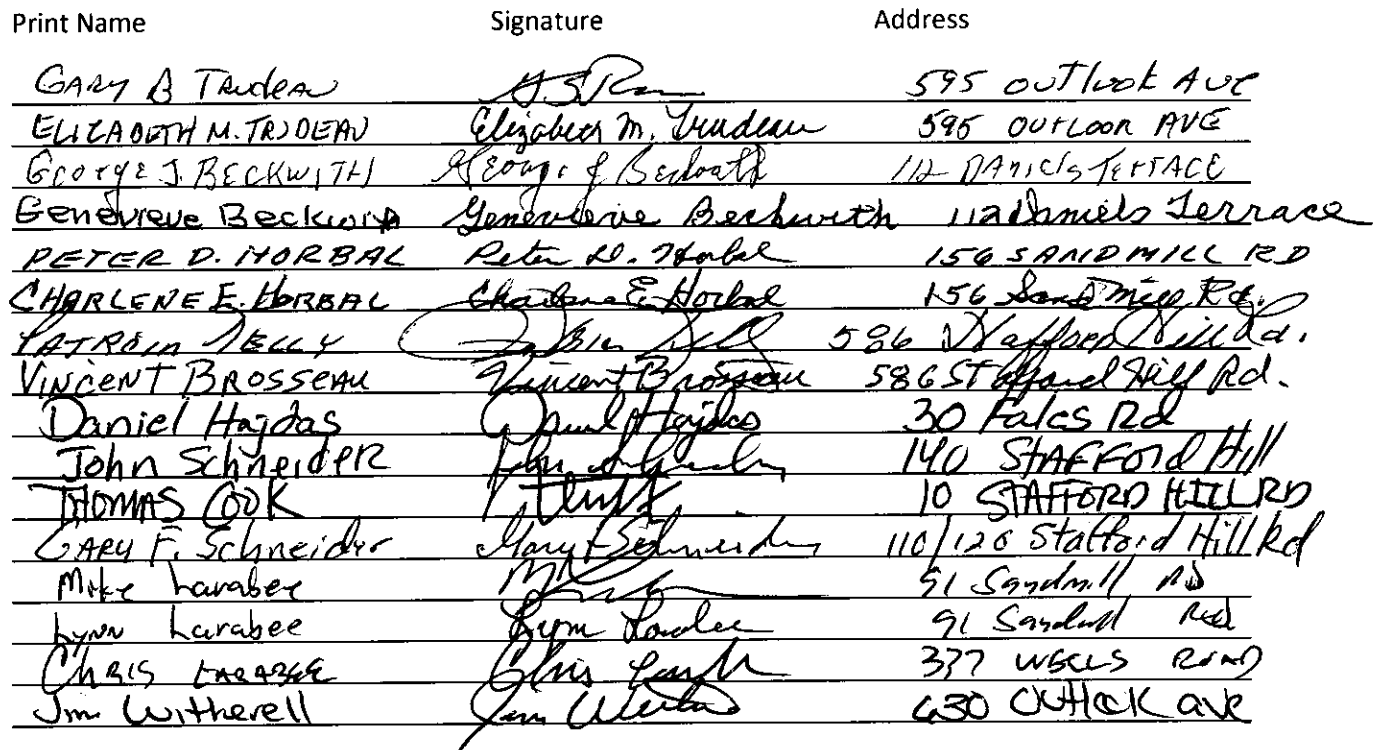 Print Name Signature Address
GARY B TRUDEAU 595 OUTLOOK AVE
ELIZABETH M. TRUDEAU Elizabeth M. Trudeau 595 OUTLOOK AVE
GEORGE J. BECKWITH George J Beckwith 112 DANIELS TERRACE
Genevieve Beckwith Genevieve Beckwith 112 Daniels Terrace
PETER D. HORBAL Peter D. Horbal 156 SANDMILL RD
CHARLENE E. HORBAL Charlene E. Horbal 156 Sand Mill Rd.
586 Stafford Hill Rd.
VINCENT BROSSEAU Vincent Brosseau 586 Stafford Hill Rd.
Daniel Hajdas Daniel Hajdas 30 Fales Rd
John SchneideR 140 STAFFORd Hill
THOMAS COOK 10 STAFFORD HILL RD
GARY F. Schneider Gary F Schneider 110/120 Stafford Hill Rd
Mike Larabee 91 Sandmill Rd
Lynn Larabee Lynn Larabee 91 Sandmill Rd
CHRIS LARABEE Chris 377 WELLS ROAD
Jim Witherell Jim 630 Outlook ave